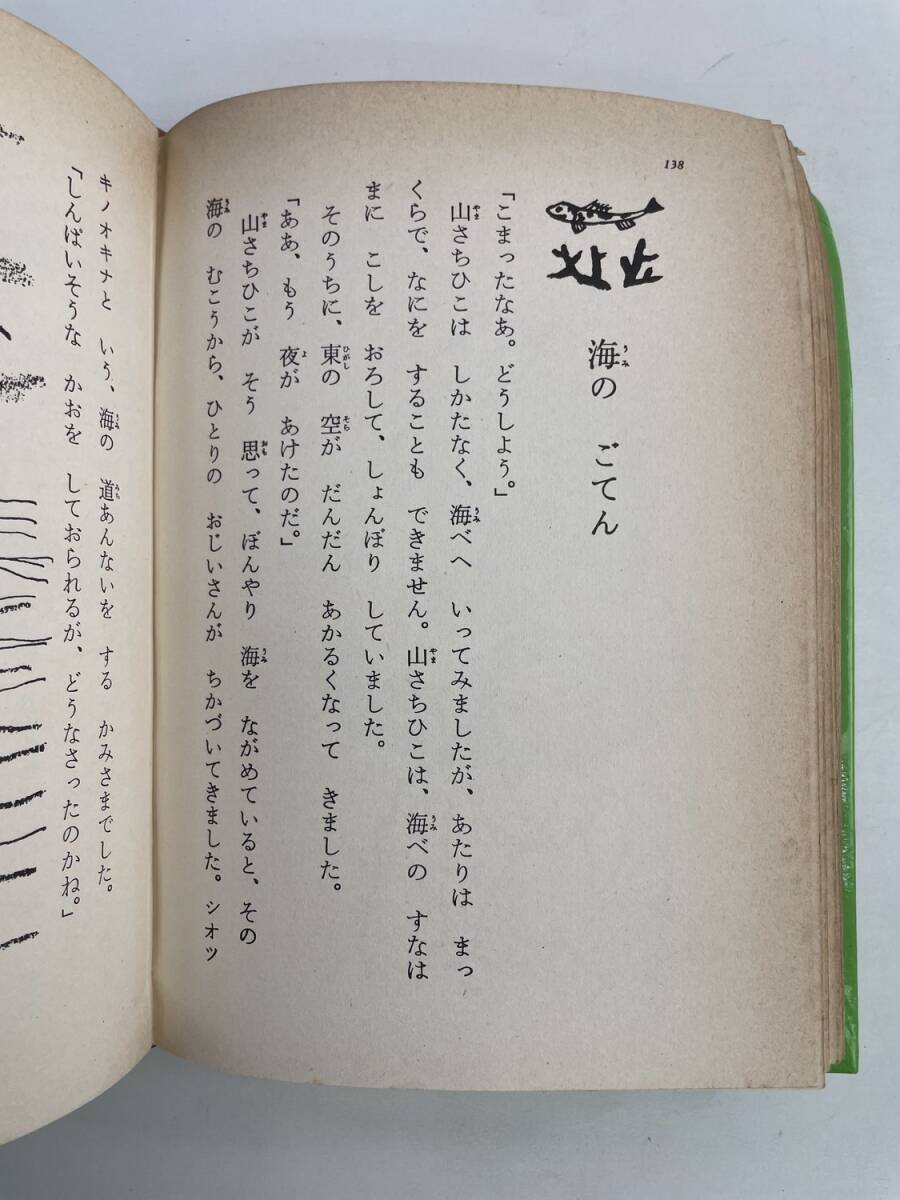 138
海の ごてん
「こまったなあ。どうしよう。」
山さちひこは しかたなく、海べへ いってみましたが、あたりは まっ
くらで、なにを することも できません。山さちひこは、海べの すなは
まに こしを おろして、しょんぼり していました。
そのうちに、東の 空が だんだん あかるくなって きました。
「ああ、もう 夜が あけたのだ。」
山さちひこが そう 思って、ぼんやり 海を ながめていると、その
海の むこうから、ひとりの おじいさんが ちかづいてきました。シオツ
キノオキナと いう、海の 道あんないを する かみさまでした。
「しんぱいそうな かおを しておられるが、どうなさったのかね。」